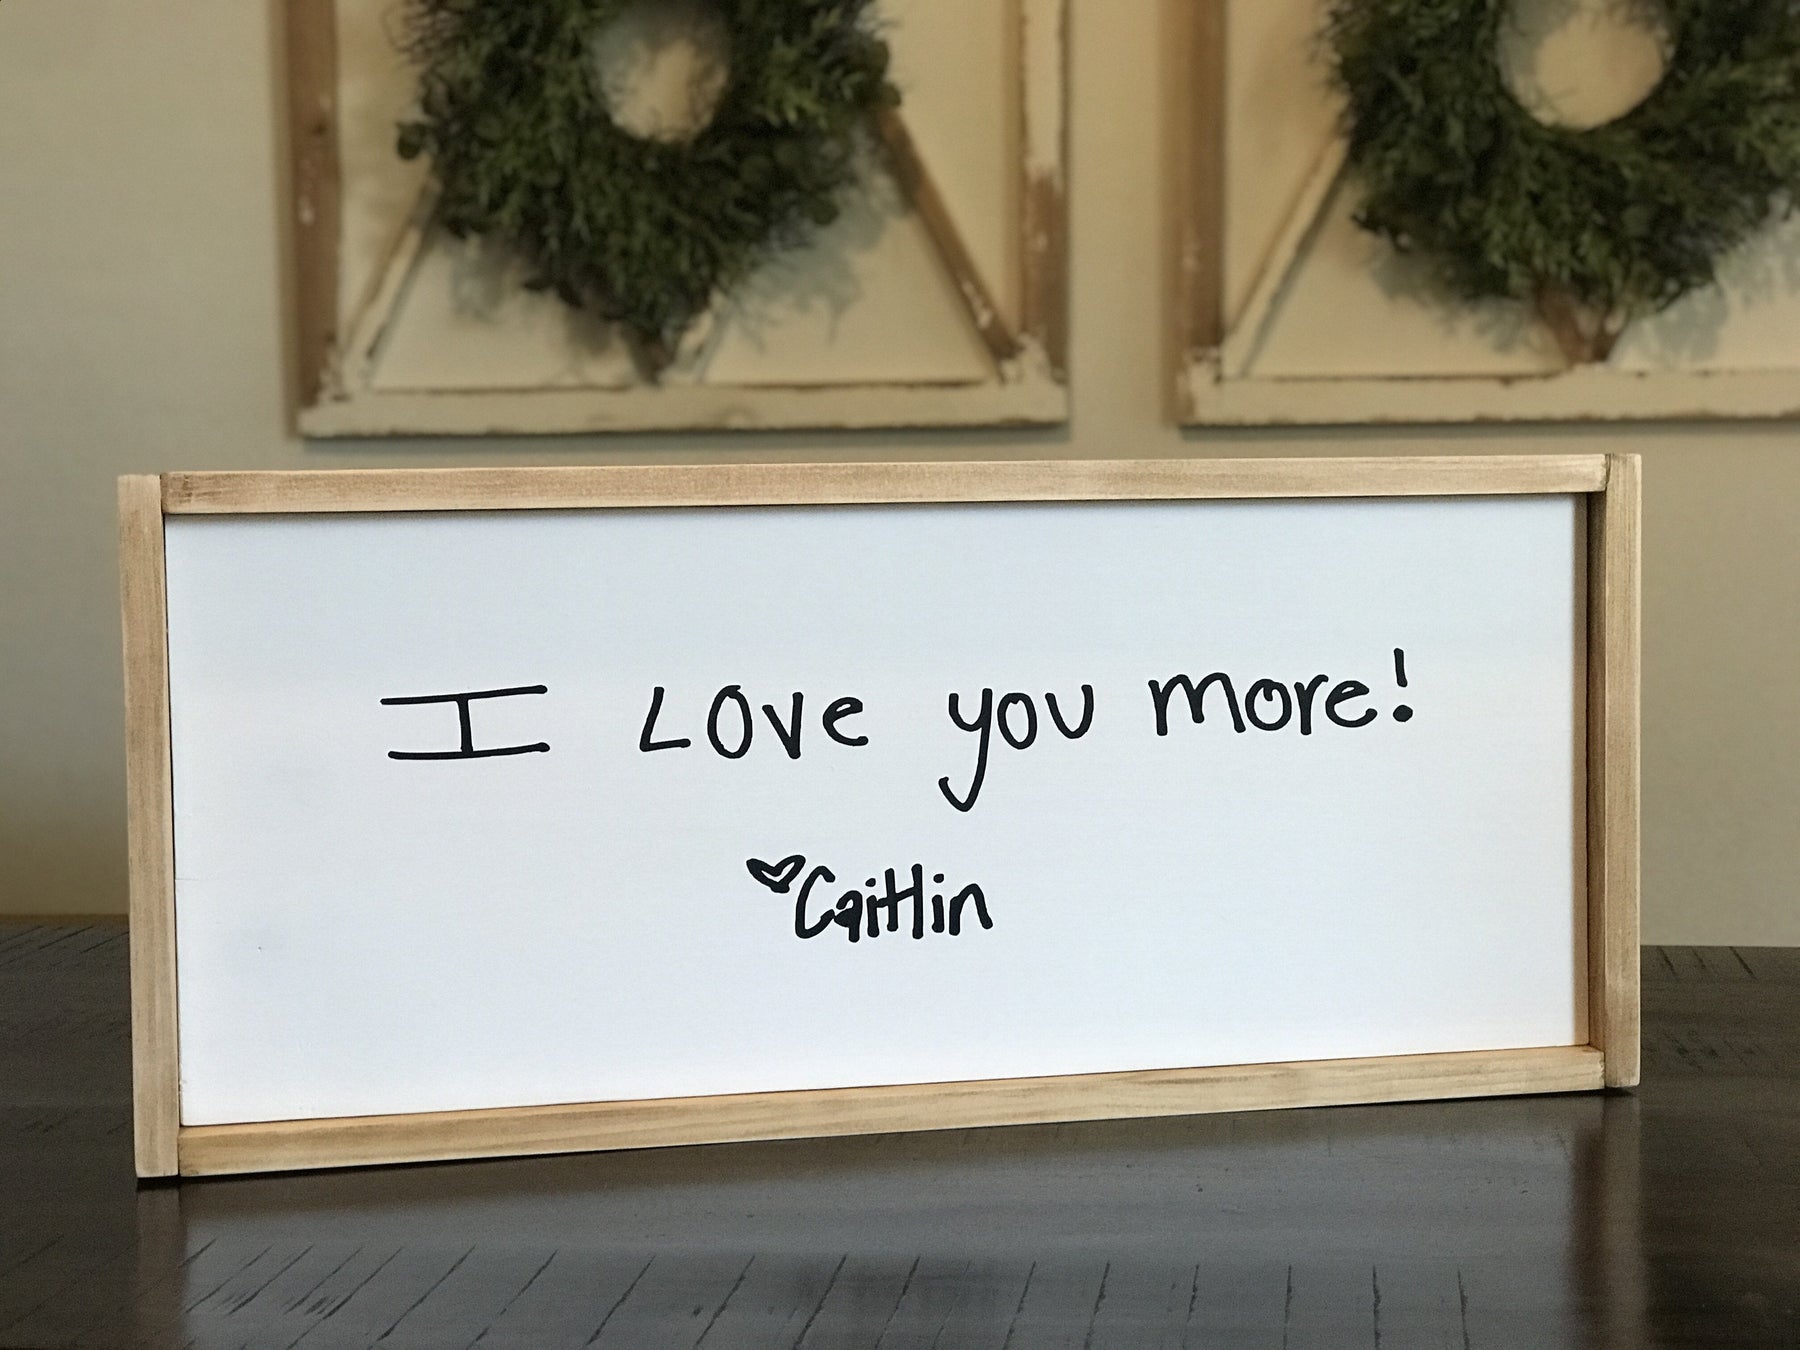 I Love you more!
♥Caitlin